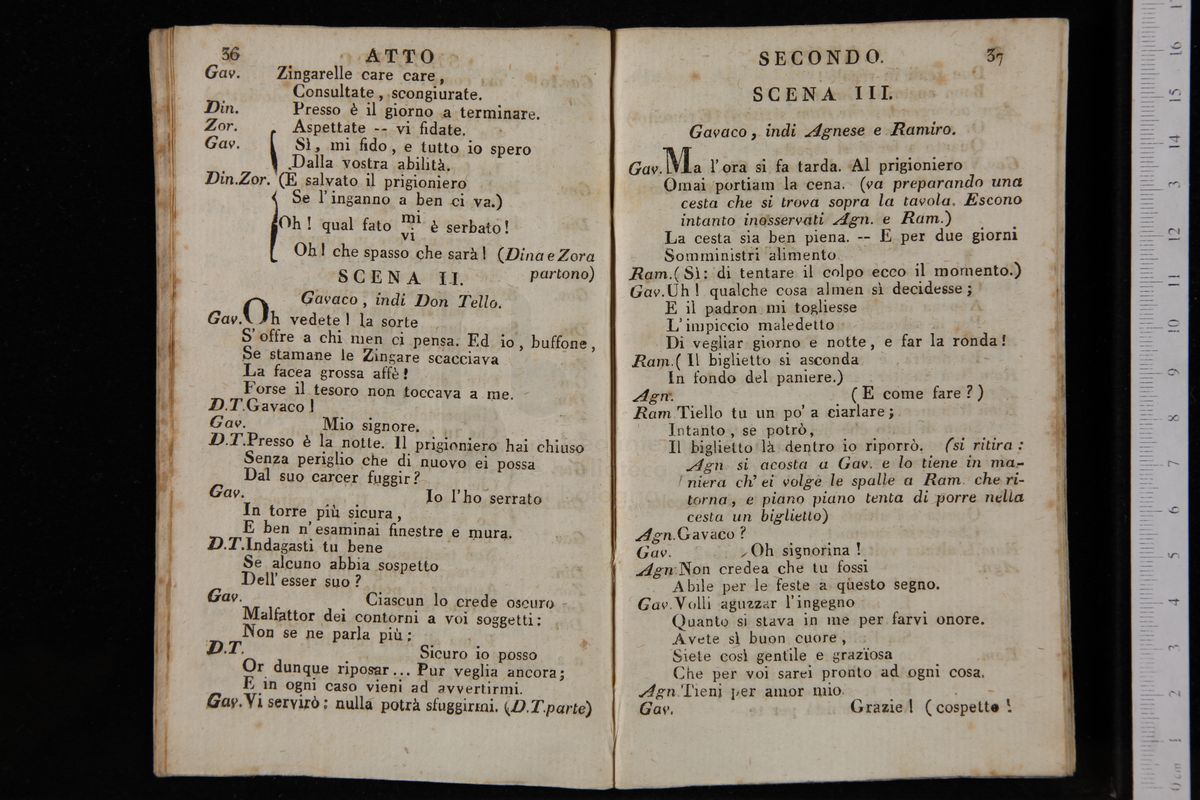 36 ATTO
Gav. Zingarelle care care,
Consultate, scongiurate.
Din. Presso è il giorno a terminare.
Zor. Aspettate -- vi fidate.
Gav. Sì, mi fido, e tutto io spero
Dalla vostra abilità.
Din.Zor. (E salvato il prigioniero
Se l'inganno a ben ci va.)
Oh! qual fato mi vi è serbato!
Oh! che spasso che sarà! (Dina e Zora
partono)
SCENA II.
Gavaco, indi Don Tello.
Gav. Oh vedete! la sorte
S'offre a chi men ci pensa. Ed io, buffone,
Se stamane le Zingare scacciava
La facea grossa affè!
Forse il tesoro non toccava a me.
D.T. Gavaco!
Gav. Mio signore.
D.T. Presso è la notte. Il prigioniero hai chiuso
Senza periglio che di nuovo ei possa
Dal suo carcer fuggir?
Gav. Io l'ho serrato
In torre più sicura,
E ben n'esaminai finestre e mura.
D.T. Indagasti tu bene
Se alcuno abbia sospetto
Dell'esser suo?
Gav. Ciascun lo crede oscuro
Malfattor dei contorni a voi soggetti:
Non se ne parla più;
D.T. Sicuro io posso
Or dunque riposar... Pur veglia ancora;
E in ogni caso vieni ad avvertirmi.
Gav. Vi servirò: nulla potrà sfuggirmi. (D.T. parte)
SECONDO. 37
SCENA III.
Gavaco, indi Agnese e Ramiro.
Gav. Ma l'ora si fa tarda. Al prigioniero
Omai portiam la cena. (va preparando una
cesta che si trova sopra la tavola. Escono
intanto inosservati Agn. e Ram.)
La cesta sia ben piena. -- E per due giorni
Somministri alimento
Ram. (Sì: di tentare il colpo ecco il momento.)
Gav. Uh! qualche cosa almen sì decidesse;
E il padron mi togliesse
L'impiccio maledetto
Di vegliar giorno e notte, e far la ronda!
Ram. (Il biglietto si asconda
In fondo del paniere.)
Agn. (E come fare?)
Ram Tiello tu un po' a ciarlare;
Intanto, se potrò,
Il biglietto là dentro io riporrò. (si ritira:
Agn si acosta a Gav. e lo tiene in ma-
niera ch'ei volge le spalle a Ram. che ri-
torna, e piano piano tenta di porre nella
cesta un biglietto)
Agn. Gavaco?
Gav. Oh signorina!
Agn Non credea che tu fossi
Abile per le feste a questo segno.
Gav. Volli aguzzar l'ingegno
Quanto si stava in me per farvi onore.
Avete sì buon cuore,
Siete così gentile e grazïosa
Che per voi sarei pronto ad ogni cosa.
Agn Tieni per amor mio
Gav. Grazie! (cospetto!